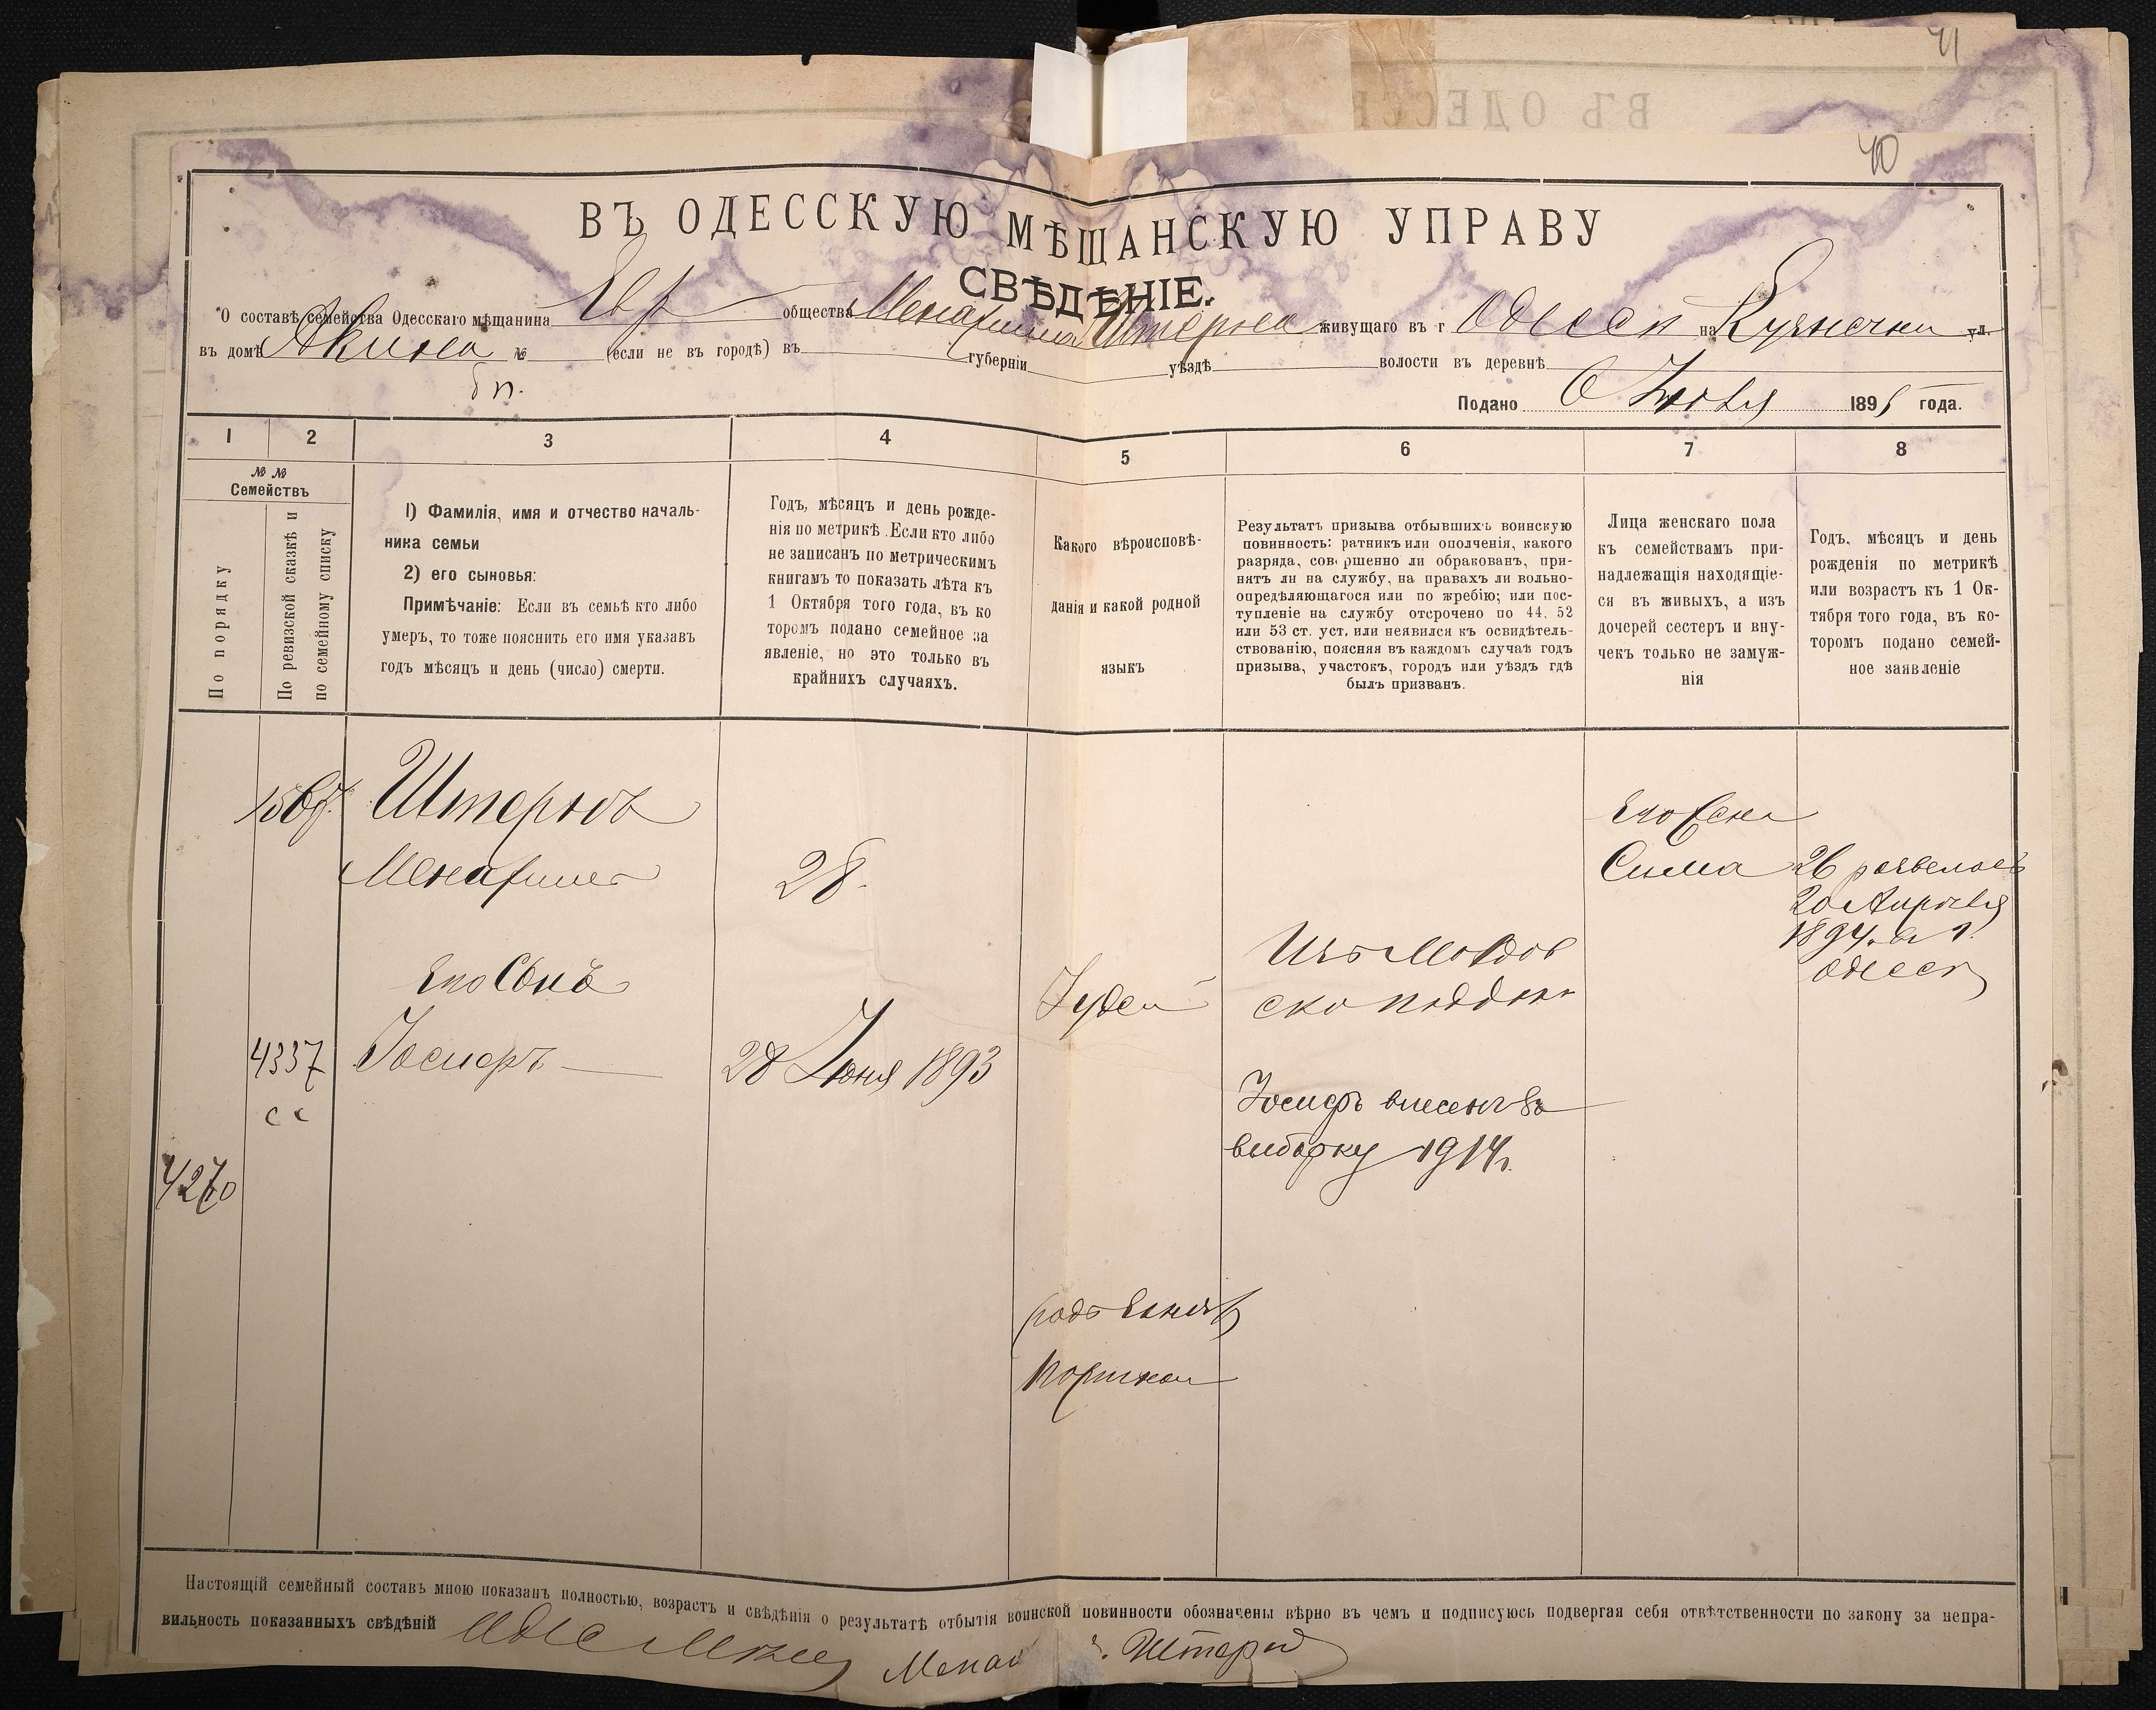 41
ВЪ ОДЕСС
40
ВЪ ОДЕССКУЮ МѢЩАНСКУЮ УПРАВУ
СВѢДѢНІЕ.
О составѣ семейства Одесскаго мѣщанина Евр общества Менахима живущаго въ г Одесси на ул.
въ домѣ № (если не въ городѣ) въ губерніи уѣздѣ волости въ деревнѣ
Подано 189 года.
1 2 3 4 5 6 7 8
№ №
Семействъ
По порядку
По ревизской сказкѣ и
по семейному списку
1) Фамилія, имя и отчество началь-
ника семьи
2) его сыновья:
Примѣчаніе: Если въ семьѣ кто либо
умеръ, то тоже пояснить его имя указавъ
годъ мѣсяцъ и день (число) смерти.
Годъ, мѣсяцъ и день рожде-
нія по метрикѣ. Если кто либо
не записанъ по метрическимъ
книгамъ то показать лѣта къ
1 Октября того года, въ ко
торомъ подано семейное за
явленіе, но это только въ
крайнихъ случаяхъ.
Какого вѣроисповѣ-
данія и какой родной
языкъ
Результатъ призыва отбывшихъ воинскую
повинность: ратникъ или ополченія, какого
разряда, совершенно ли обракованъ, при-
нятъ ли на службу, на правахъ ли вольно-
опредѣляющагося или по жребію; или пос-
тупленіе на службу отсрочено по 44, 52
или 53 ст. уст. или неявился къ освидѣтель-
ствованію, поясняя въ каждомъ случаѣ годъ
призыва, участокъ, городъ или уѣздъ гдѣ
былъ призванъ.
Лица женскаго пола
къ семействамъ при-
надлежащія находящіе-
ся въ живыхъ, а изъ
дочерей сестеръ и вну-
чекъ только не замуж-
нія
Годъ, мѣсяцъ и день
рожденія по метрикѣ
или возрастъ къ 1 Ок-
тября того года, въ ко-
торомъ подано семей-
ное заявленіе
Менахимъ 28.
Сима 26
20 Апрѣля
1894. в г.
Одесси
Его Сынъ
Іудей
4337 Іосифъ 28 Іюня 1893
с с
Іосифъ внесенъ въ
выборку 1914 г.
4270
Настоящій семейный составъ мною показанъ полностью, возрастъ и свѣдѣнія о результатѣ отбытія воинской повинности обозначены вѣрно въ чемъ и подписуюсь подвергая себя отвѣтственности по закону за непра-
вильность показанныхъ свѣдѣній